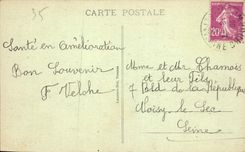 35
CARTE POSTALE
Santé en Amélioration
Bon Souvenir
F. Velche
Mme et Mr Chamois
et leur Fils
7 Bld de la République
Noisy le Sec
Seine
20c